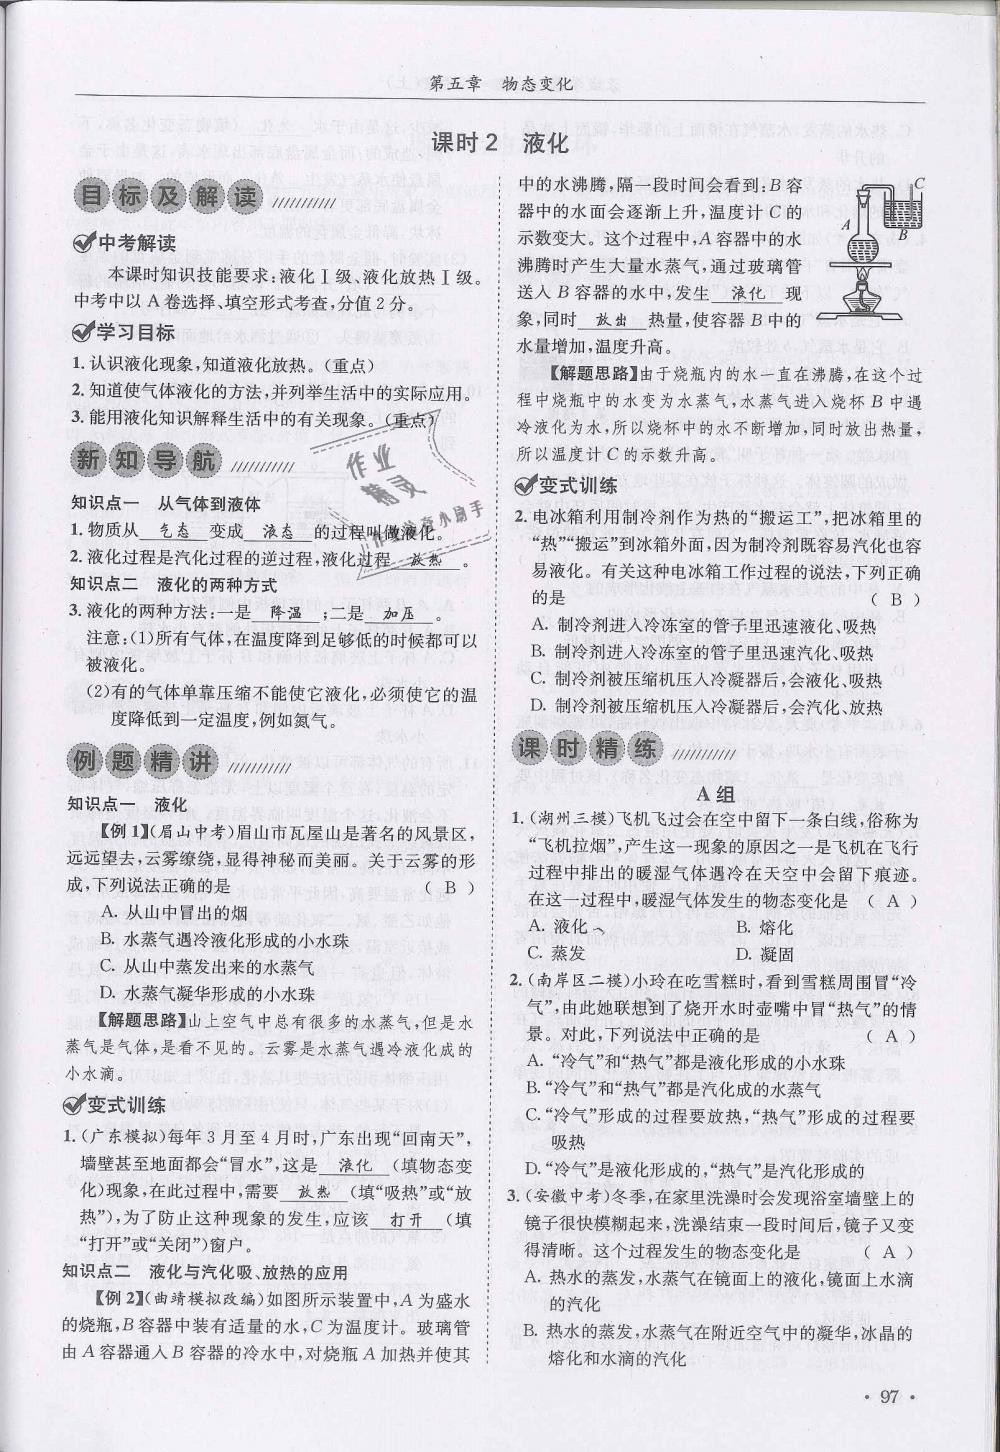 第五章 物态变化
课时2 液化
目标及解读
中考解读
本课时知识技能要求:液化Ⅰ级、液化放热Ⅰ级。
中考中以A卷选择、填空形式考查,分值2分。
学习目标
1. 认识液化现象,知道液化放热。(重点)
2. 知道使气体液化的方法,并列举生活中的实际应用。
3. 能用液化知识解释生活中的有关现象。(重点)
新知导航
知识点一 从气体到液体
1. 物质从 气态 变成 液态 的过程叫做液化。
2. 液化过程是汽化过程的逆过程,液化过程 放热 。
知识点二 液化的两种方式
3. 液化的两种方法:一是 降温 ;二是 加压 。
注意:(1)所有气体,在温度降到足够低的时候都可以
被液化。
(2)有的气体单靠压缩不能使它液化,必须使它的温
度降低到一定温度,例如氮气。
例题精讲
知识点一 液化
【例1】(眉山中考)眉山市瓦屋山是著名的风景区,
远远望去,云雾缭绕,显得神秘而美丽。关于云雾的形
成,下列说法正确的是 ( B )
A. 从山中冒出的烟
B. 水蒸气遇冷液化形成的小水珠
C. 从山中蒸发出来的水蒸气
D. 水蒸气凝华形成的小水珠
【解题思路】山上空气中总有很多的水蒸气,但是水
蒸气是气体,是看不见的。云雾是水蒸气遇冷液化成的
小水滴。
变式训练
1. (广东模拟)每年3月至4月时,广东出现“回南天”,
墙壁甚至地面都会“冒水”,这是 液化 (填物态变
化)现象,在此过程中,需要 放热 (填“吸热”或“放
热”),为了防止这种现象的发生,应该 打开 (填
“打开”或“关闭”)窗户。
知识点二 液化与汽化吸、放热的应用
【例2】(曲靖模拟改编)如图所示装置中,A为盛水
的烧瓶,B容器中装有适量的水,C为温度计。玻璃管
由A容器通入B容器的冷水中,对烧瓶A加热并使其
中的水沸腾,隔一段时间会看到:B容
器中的水面会逐渐上升,温度计C的
示数变大。这个过程中,A容器中的水
沸腾时产生大量水蒸气,通过玻璃管
送入B容器的水中,发生 液化 现
象,同时 放出 热量,使容器B中的
水量增加,温度升高。
C
A
B
【解题思路】由于烧瓶内的水一直在沸腾,在这个过
程中烧瓶中的水变为水蒸气,水蒸气进入烧杯B中遇
冷液化为水,所以烧杯中的水不断增加,同时放出热量,
所以温度计C的示数升高。
变式训练
2. 电冰箱利用制冷剂作为热的“搬运工”,把冰箱里的
“热”“搬运”到冰箱外面,因为制冷剂既容易汽化也容
易液化。有关这种电冰箱工作过程的说法,下列正确
的是 ( B )
A. 制冷剂进入冷冻室的管子里迅速液化、吸热
B. 制冷剂进入冷冻室的管子里迅速汽化、吸热
C. 制冷剂被压缩机压入冷凝器后,会液化、吸热
D. 制冷剂被压缩机压入冷凝器后,会汽化、放热
课时精练
A组
1. (湖州三模)飞机飞过会在空中留下一条白线,俗称为
“飞机拉烟”,产生这一现象的原因之一是飞机在飞行
过程中排出的暖湿气体遇冷在天空中会留下痕迹。
在这一过程中,暖湿气体发生的物态变化是 ( A )
A. 液化 B. 熔化
C. 蒸发 D. 凝固
2. (南岸区二模)小玲在吃雪糕时,看到雪糕周围冒“冷
气”,由此她联想到了烧开水时壶嘴中冒“热气”的情
景。对此,下列说法中正确的是 ( A )
A. “冷气”和“热气”都是液化形成的小水珠
B. “冷气”和“热气”都是汽化成的水蒸气
C. “冷气”形成的过程要放热,“热气”形成的过程要
吸热
D. “冷气”是液化形成的,“热气”是汽化形成的
3. (安徽中考)冬季,在家里洗澡时会发现浴室墙壁上的
镜子很快模糊起来,洗澡结束一段时间后,镜子又变
得清晰。这个过程发生的物态变化是 ( A )
A. 热水的蒸发,水蒸气在镜面上的液化,镜面上水滴
的汽化
B. 热水的蒸发,水蒸气在附近空气中的凝华,冰晶的
熔化和水滴的汽化
· 97 ·
作业
精灵
作业检查小助手